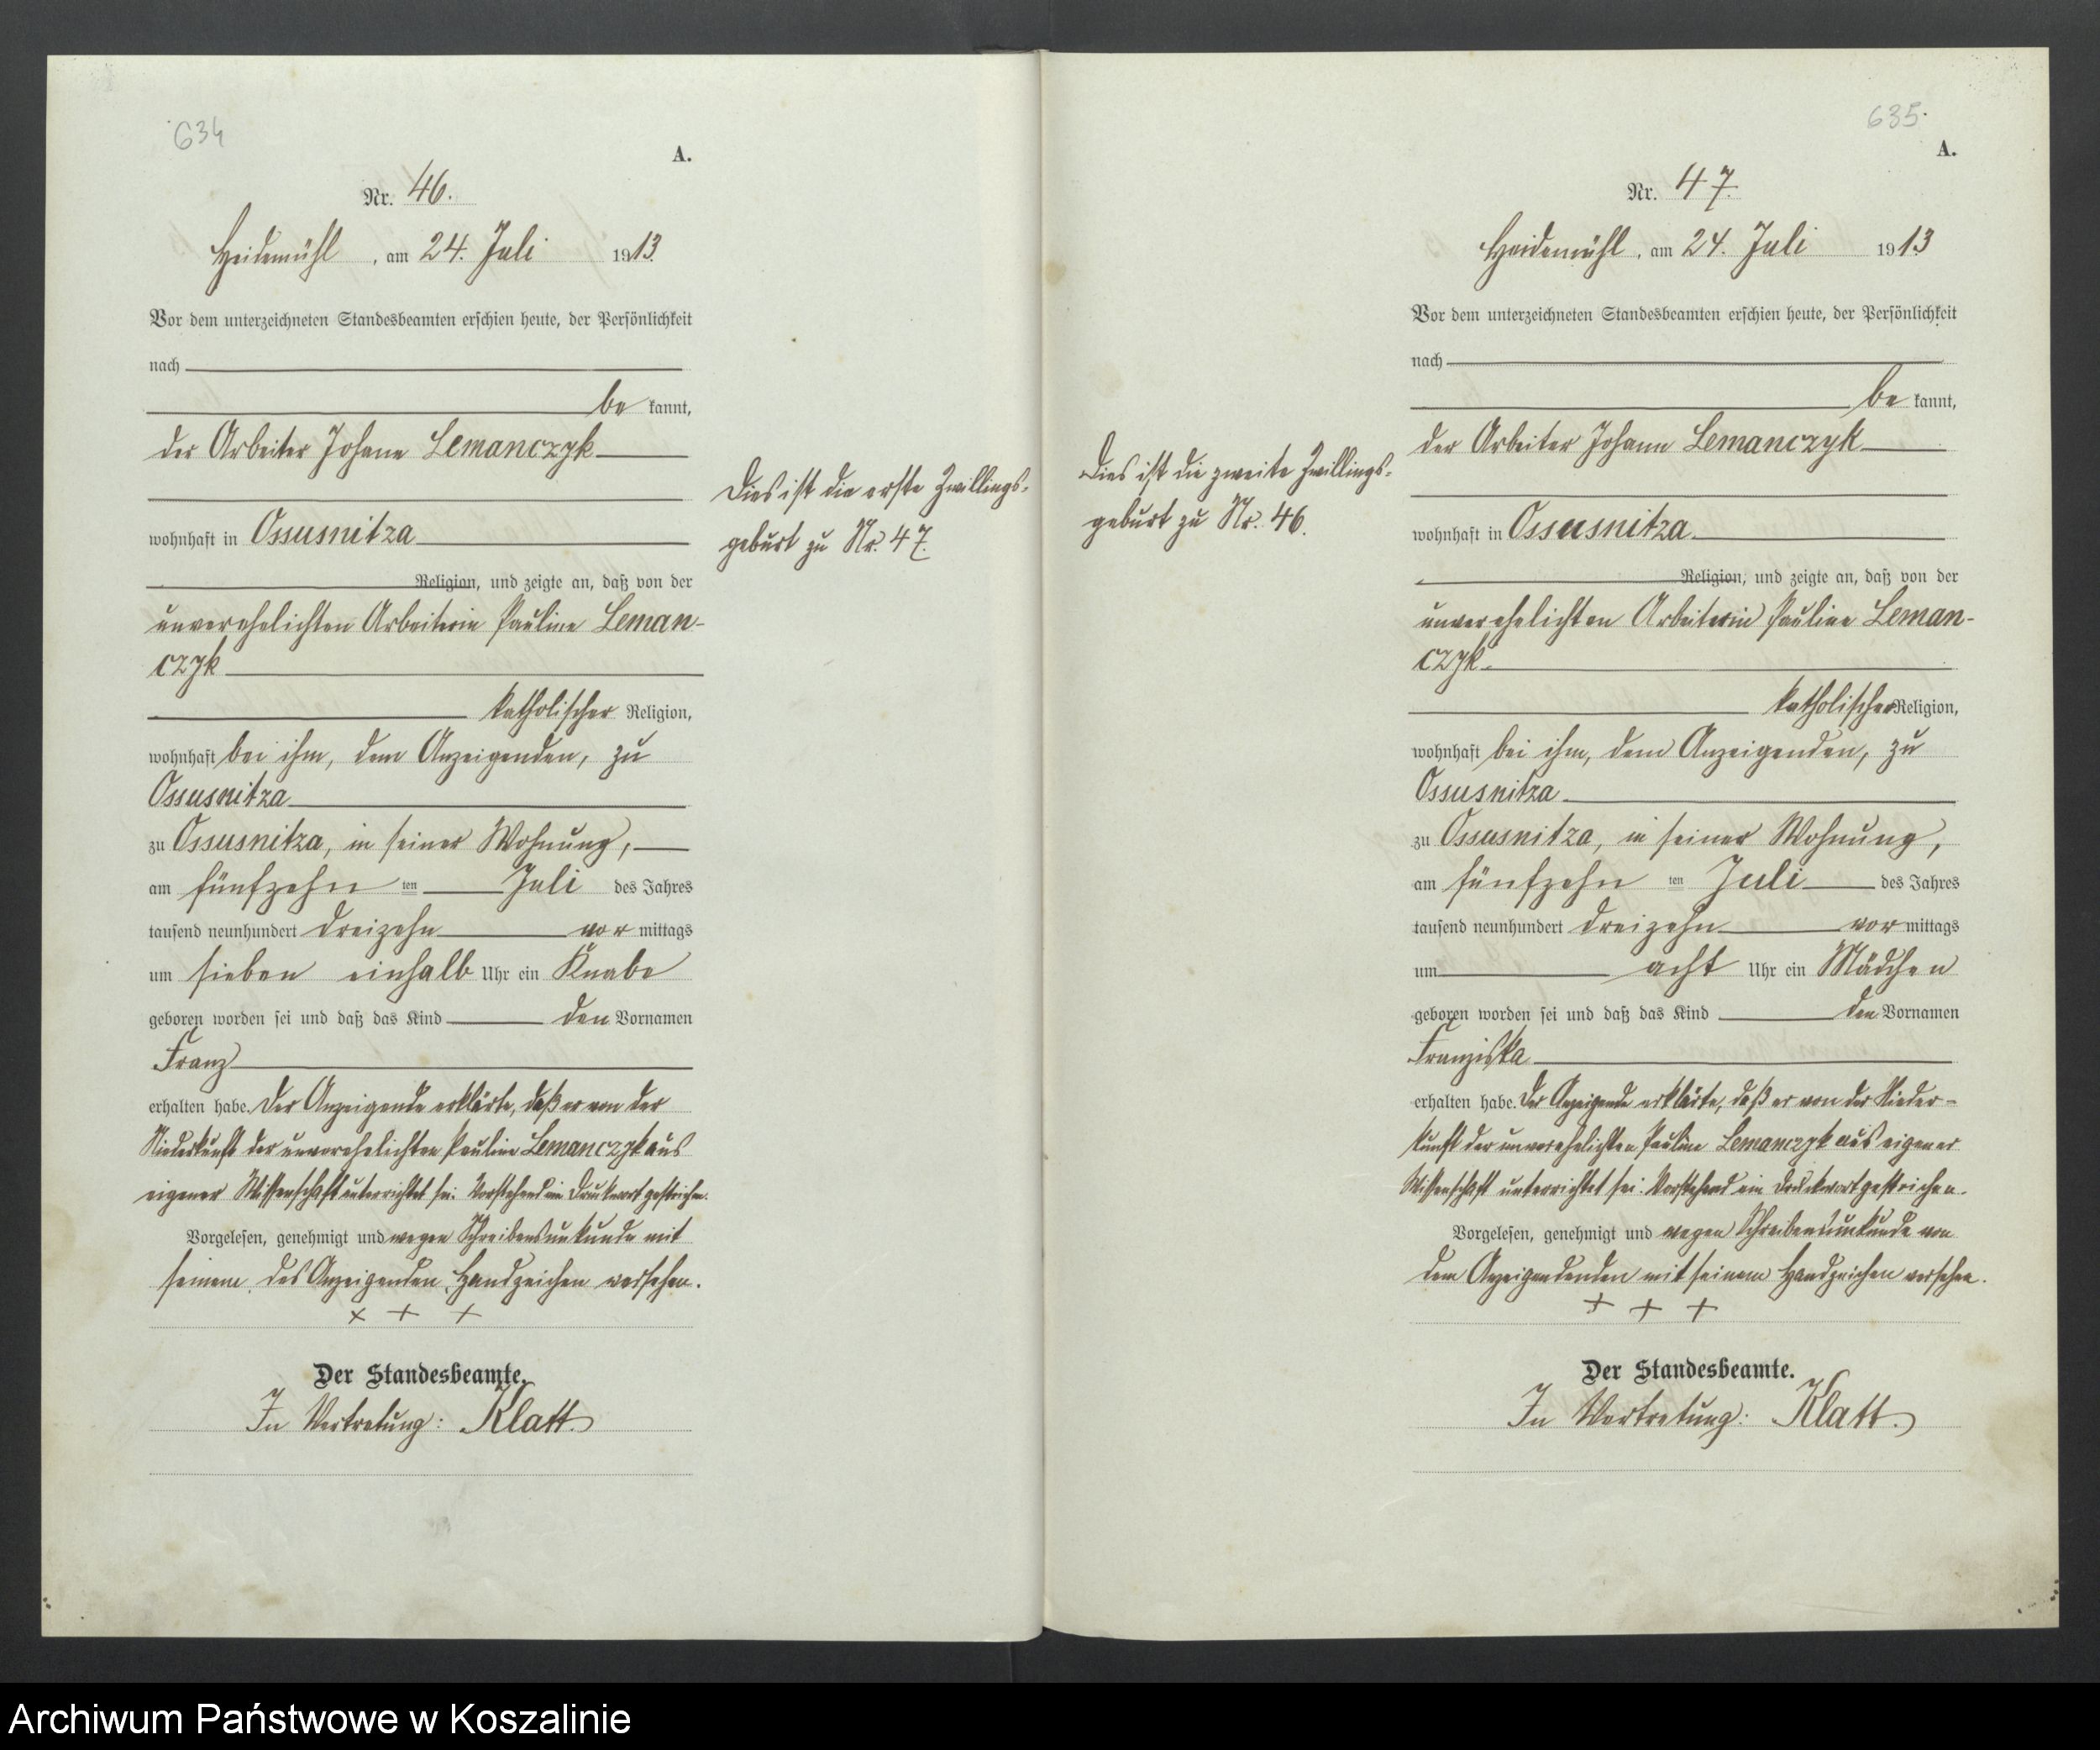 634
A.
Nr. 46.
Heidemühl, am 24. Juli 1913.
Vor dem unterzeichneten Standesbeamten erschien heute, der Persönlichkeit
nach
be kannt,
der Arbeiter Johann Lemanczyk
wohnhaft in Ossusnitza
Religion, und zeigte an, daß von der
unverehelichten Arbeiterin Pauline Leman-
czyk
katholischer Religion,
wohnhaft bei ihm, dem Anzeigenden, zu
Ossusnitza
zu Ossusnitza, in seiner Wohnung,
am fünfzehn ten Juli des Jahres
tausend neunhundert dreizehn vor mittags
um sieben einhalb Uhr ein Knabe
geboren worden sei und daß das Kind den Vornamen
Franz
erhalten habe. Der Anzeigende erklärte, daß er von der
Niederkunft der unverehelichten Pauline Lemanczyk aus
eigener Wissenschaft unterrichtet sei. Vorstehend ein Druckwort gestrichen.
Vorgelesen, genehmigt und wegen Schreibensunkunde mit
seinem, des Anzeigenden, Handzeichen versehen.
x + x
Der Standesbeamte.
In Vertretung: Klatt.
Dies ist die erste Zwillings-
geburt zu Nr. 47.
635.
A.
Nr. 47.
Heidemühl, am 24. Juli 1913
Vor dem unterzeichneten Standesbeamten erschien heute, der Persönlichkeit
nach
be kannt,
der Arbeiter Johann Lemanczyk
wohnhaft in Ossusnitza
Religion, und zeigte an, daß von der
unverehelichten Arbeiterin Pauline Leman-
czyk
katholischer Religion,
wohnhaft bei ihm, dem Anzeigenden, zu
Ossusnitza
zu Ossusnitza, in seiner Wohnung,
am fünfzehn ten Juli des Jahres
tausend neunhundert dreizehn vor mittags
um acht Uhr ein Mädchen
geboren worden sei und daß das Kind den Vornamen
Franziska
erhalten habe. Der Anzeigende erklärte, daß er von der Nieder-
kunft der unverehelichten Pauline Lemanczyk aus eigener
Wissenschaft unterrichtet sei. Vorstehend ein Druckwort gestrichen.
Vorgelesen, genehmigt und wegen Schreibensunkunde von
dem Anzeigendenden mit seinem Handzeichen versehen.
+ + +
Der Standesbeamte.
In Vertretung: Klatt.
Dies ist die zweite Zwillings-
geburt zu Nr. 46.
Archiwum Państwowe w Koszalinie